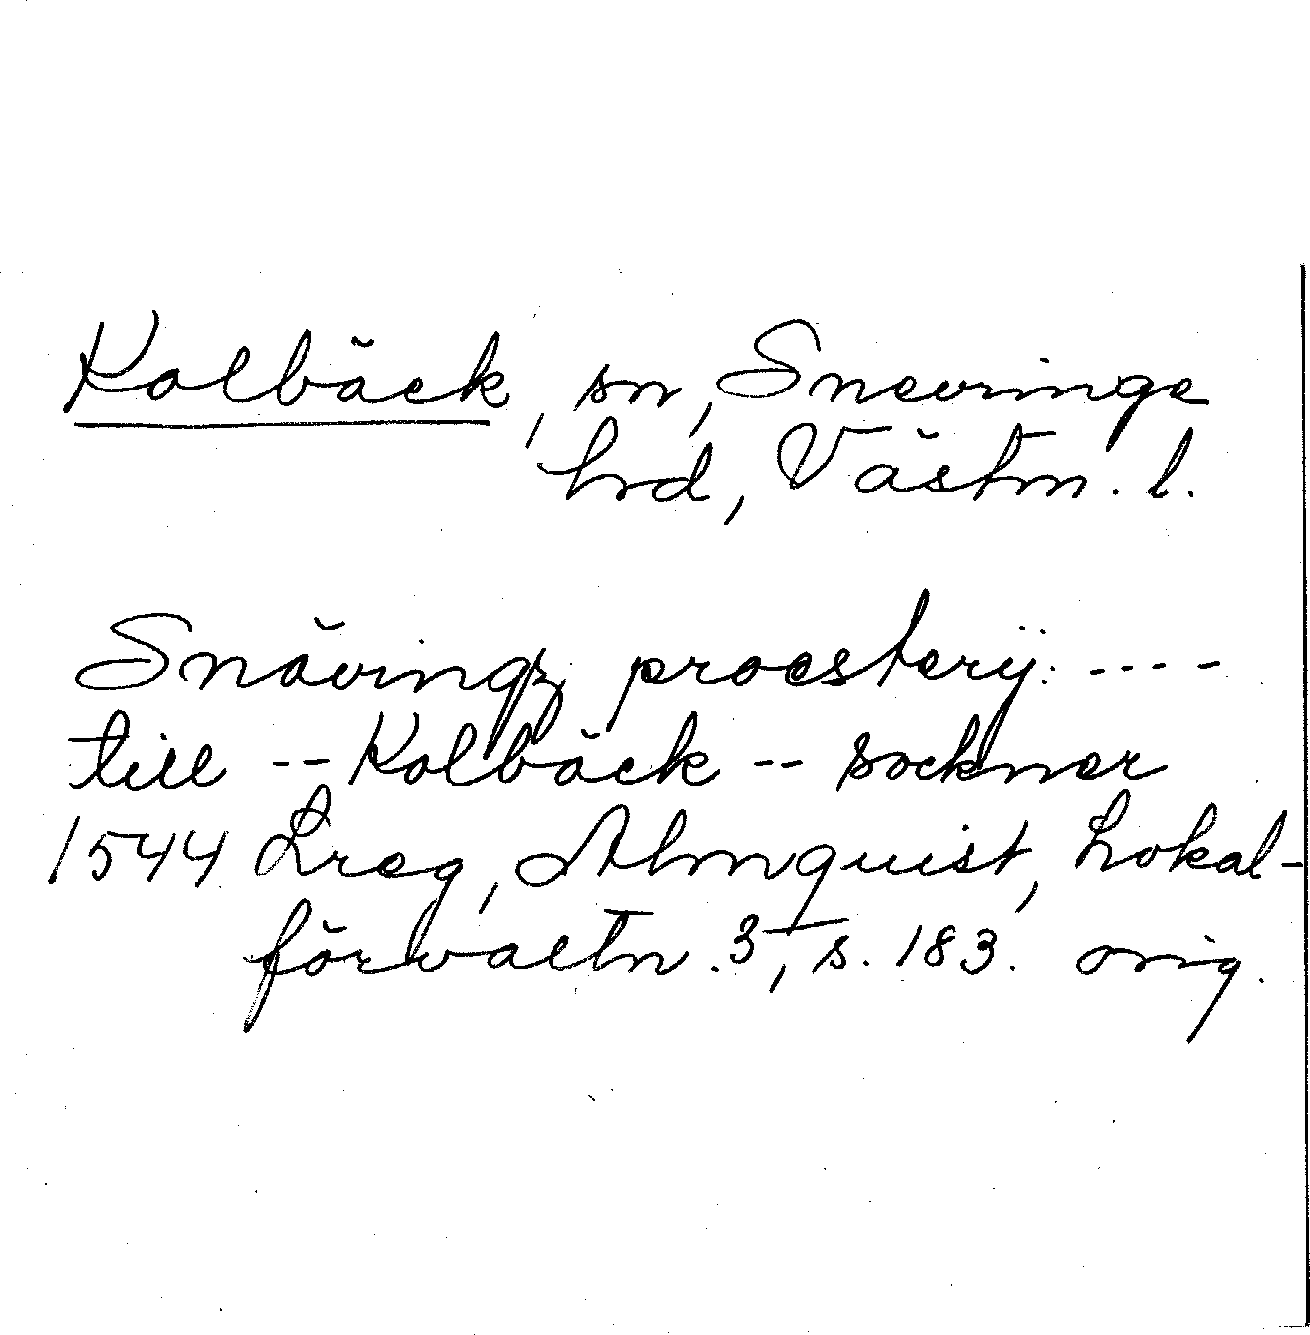 Kolbäck, sn, Snevringe
hrd, Västm. l.
Snävingz proesterij: ----
till -- Kolbäck -- sockner
1544 Lreg, Almquist, Lokal-
förvaltn. 3, s. 183. orig.